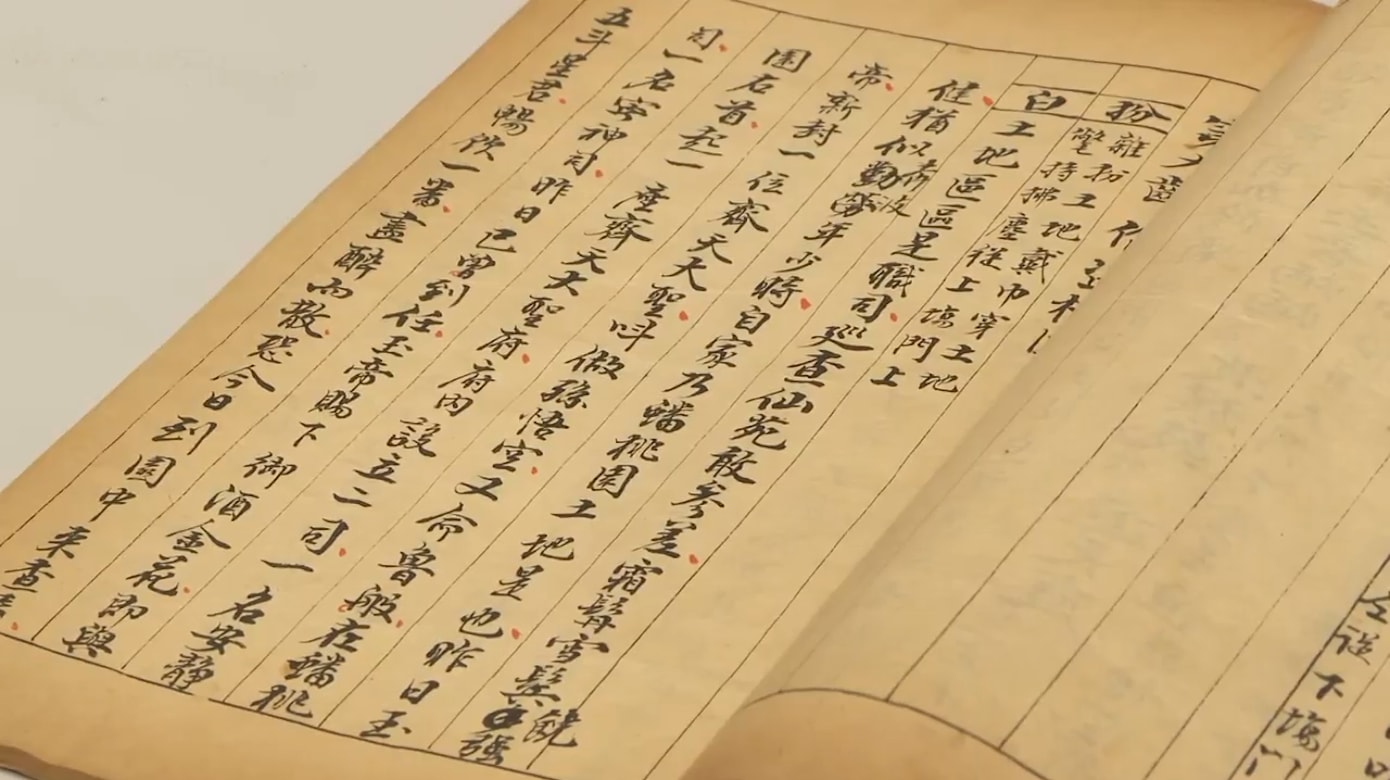 扮 雜扮土地戴巾穿土地
氅持拂塵從上塲門上
白 土地區區是職司巡查仙苑敢參差霜髯雪鬢饒强
健猶似奔波勤勞年少時自家乃蟠桃園土地是也昨日玉
帝新封一位齊天大聖叫做孫悟空又命魯般在蟠桃
園右首起一座齊天大聖府府內設立二司一名安靜
司一名寧神司昨日已曾到任玉帝賜下御酒金花即與
五斗星君暢飲一番盡醉而散恐今日到園中來查
從下塲門